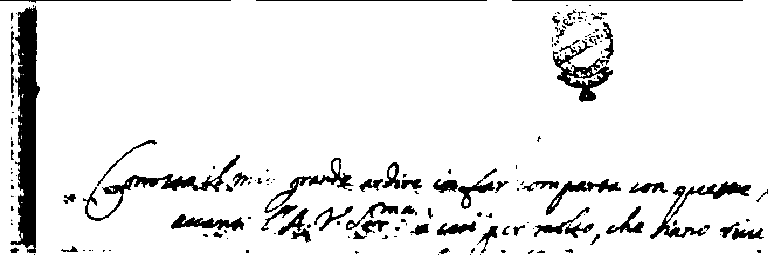 Conosco il mio grande ardire in far comparsa con queste,
auanti l'A. V. Ser.ma à cui per molto, che siano